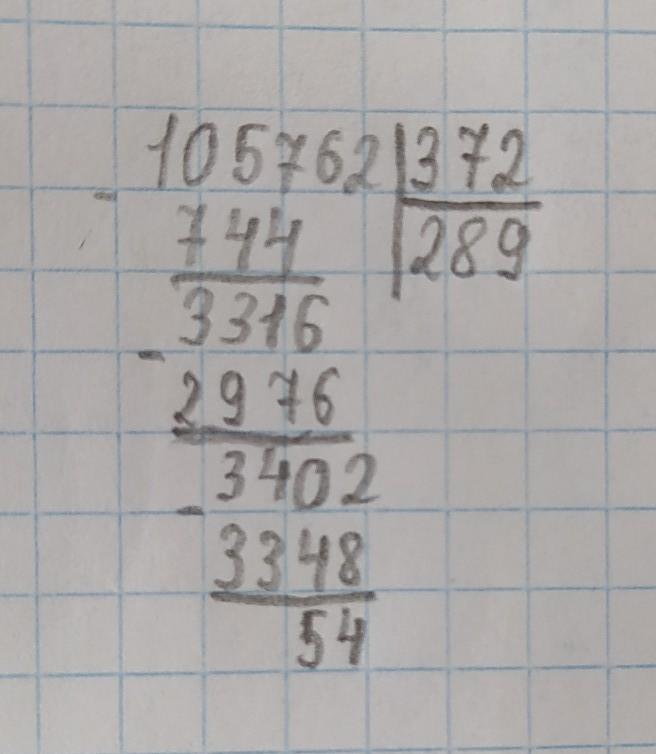 105762|372
- 744 |289
3316
- 2976
3402
- 3348
54